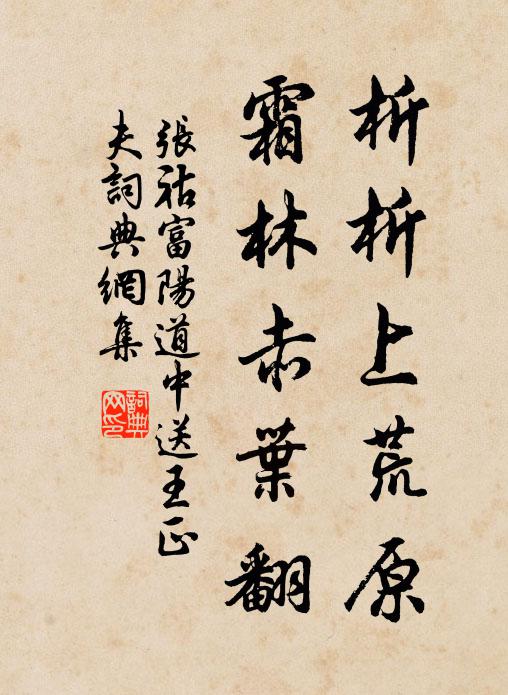 析析上荒原
霜林赤葉翻
張祜富陽道中送王正
夫詞典網集
詞典网印